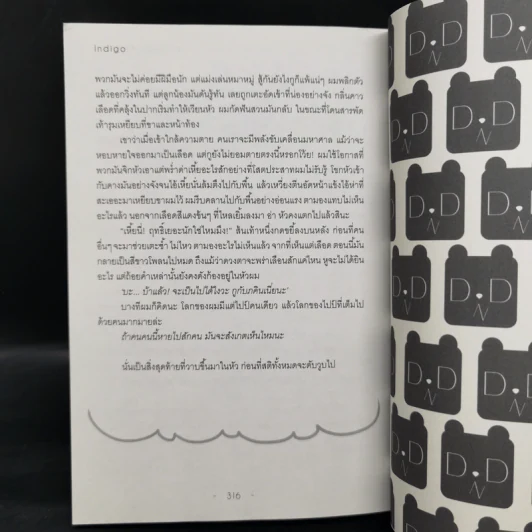 Indigo
พวกมันจะไม่ค่อยมีฝีมือนัก แต่แม่งเล่นหมาหมู่ สู้กันยังไงกูก็แพ้แน่ๆ ผมพลิกตัว
แล้วออกวิ่งทันที แต่ลูกน้องมันดันรู้ทัน เลยถูกเตะอัดเข้าที่น่องอย่างจัง กลิ่นคาว
เลือดที่คลุ้งในปากเริ่มทำให้เวียนหัว ผมกัดฟันสวนมันกลับ ในขณะที่โดนสารพัด
เท้ารุมเหยียบที่ขาและหน้าท้อง
เขาว่าเมื่อเข้าใกล้ความตาย คนเราจะมีพลังขับเคลื่อนมหาศาล แม้ว่าจะ
หอบหายใจออกมาเป็นเลือด แต่กูยังไม่ยอมตายตรงนี้หรอกโว้ย! ผมใช้โอกาสที่
พวกมันจิกหัวเอาแต่พร่ำด่าเหี้ยอะไรสักอย่างที่โสตประสาทผมไม่รับรู้ โขกหัวเข้า
กับคางมันอย่างจังจนไอ้เหี้ยนั่นล้มตึงไปกับพื้น แล้วเหวี่ยงตีนอัดหน้าแข้งไอ้ห่าที่
สะเออะมาเหยียบขาผมไว้ ผมรีบคลานไปกับพื้นอย่างอ่อนแรง ตามองแทบไม่เห็น
อะไรแล้ว นอกจากเลือดสีแดงข้นๆ ที่ไหลเยิ้มลงมา อ่า หัวคงแตกไปแล้วสินะ
"เหี้ยนี่! ฤทธิ์เยอะนักใช่ไหมมึง!" ส้นเท้าหนึ่งกดขยี้ลงบนหลัง ก่อนที่คน
อื่นๆ จะมาช่วยเตะซ้ำ ไม่ไหว ตามองอะไรไม่เห็นแล้ว จากที่เห็นแต่เลือด ตอนนี้มัน
กลายเป็นสีขาวโพลนไปหมด ถึงแม้ว่าดวงตาจะพร่าเลือนสักแค่ไหน หูจะไม่ได้ยิน
อะไร แต่ถ้อยคำเหล่านั้นยังคงดังก้องอยู่ในหัวผม
'บะ... บ้าแล้ว! จะเป็นไปได้ไงวะ กูกับภคินเนี่ยนะ'
บางทีผมก็คิดนะ โลกของผมมีแต่ไปป์คนเดียว แล้วโลกของไปป์ที่เต็มไป
ด้วยคนมากมายล่ะ
ถ้าคนคนนี้หายไปสักคน มันจะสังเกตเห็นไหมนะ
นั่นเป็นสิ่งสุดท้ายที่วาบขึ้นมาในหัว ก่อนที่สติทั้งหมดจะดับวูบไป
316